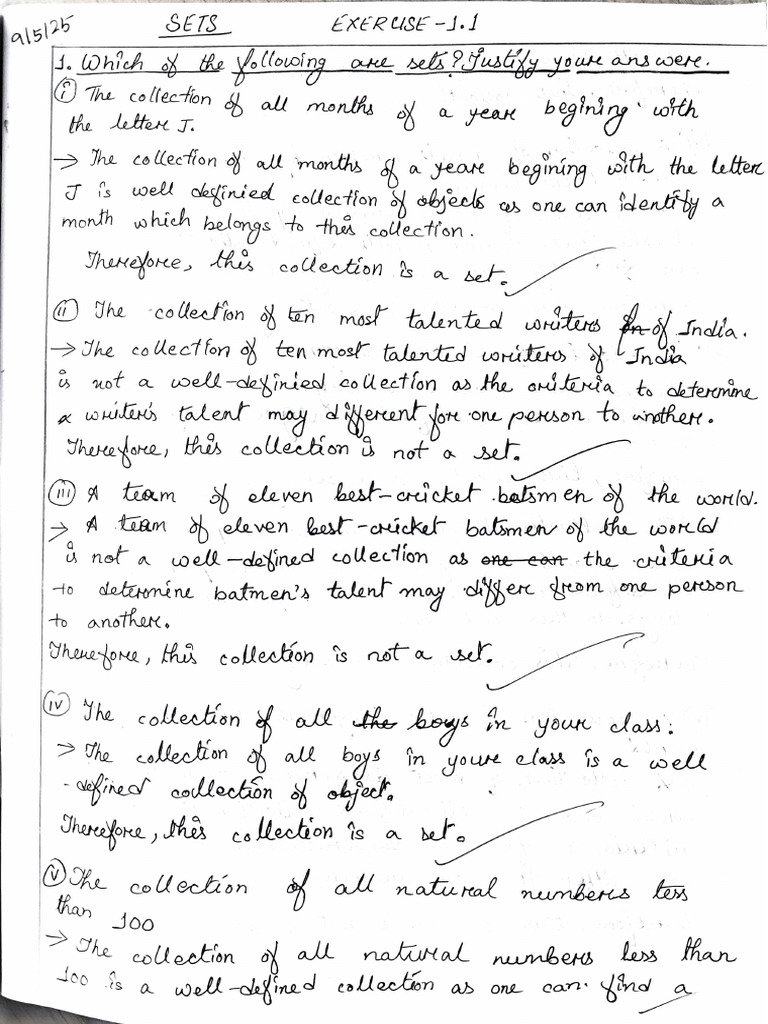 9/5/25 SETS EXERCISE-1.1
1. Which of the following are sets? Justify youre answere.
(i) The collection of all months of a yeare begining with
the letter J.
→ The collection of all months of a yeare begining with the letter
J is well definied collection of objects as one can identify a
month which belongs to this collection.
Therefore, this collection is a set.
(ii) The collection of ten most talented writers of India.
→ The collection of ten most talented writers of India
is not a well-definied collection as the criteria to determine
a writer's talent may different for one person to another.
Therefore, this collection is not a set.
(iii) A team of eleven best-cricket batsmen of the world.
→ A team of eleven best-cricket batsmen of the world
is not a well-defined collection as one can the criteria
to determine batmen's talent may differ from one person
to another.
Therefore, this collection is not a set.
(iv) The collection of all the boys in your class.
→ The collection of all boys in youre class is a well
-defined collection of object.
Therefore, this collection is a set.
(v) The collection of all natural numbers less
than 100
→ The collection of all natural numbers less than
100 is a well-defined collection as one can find a